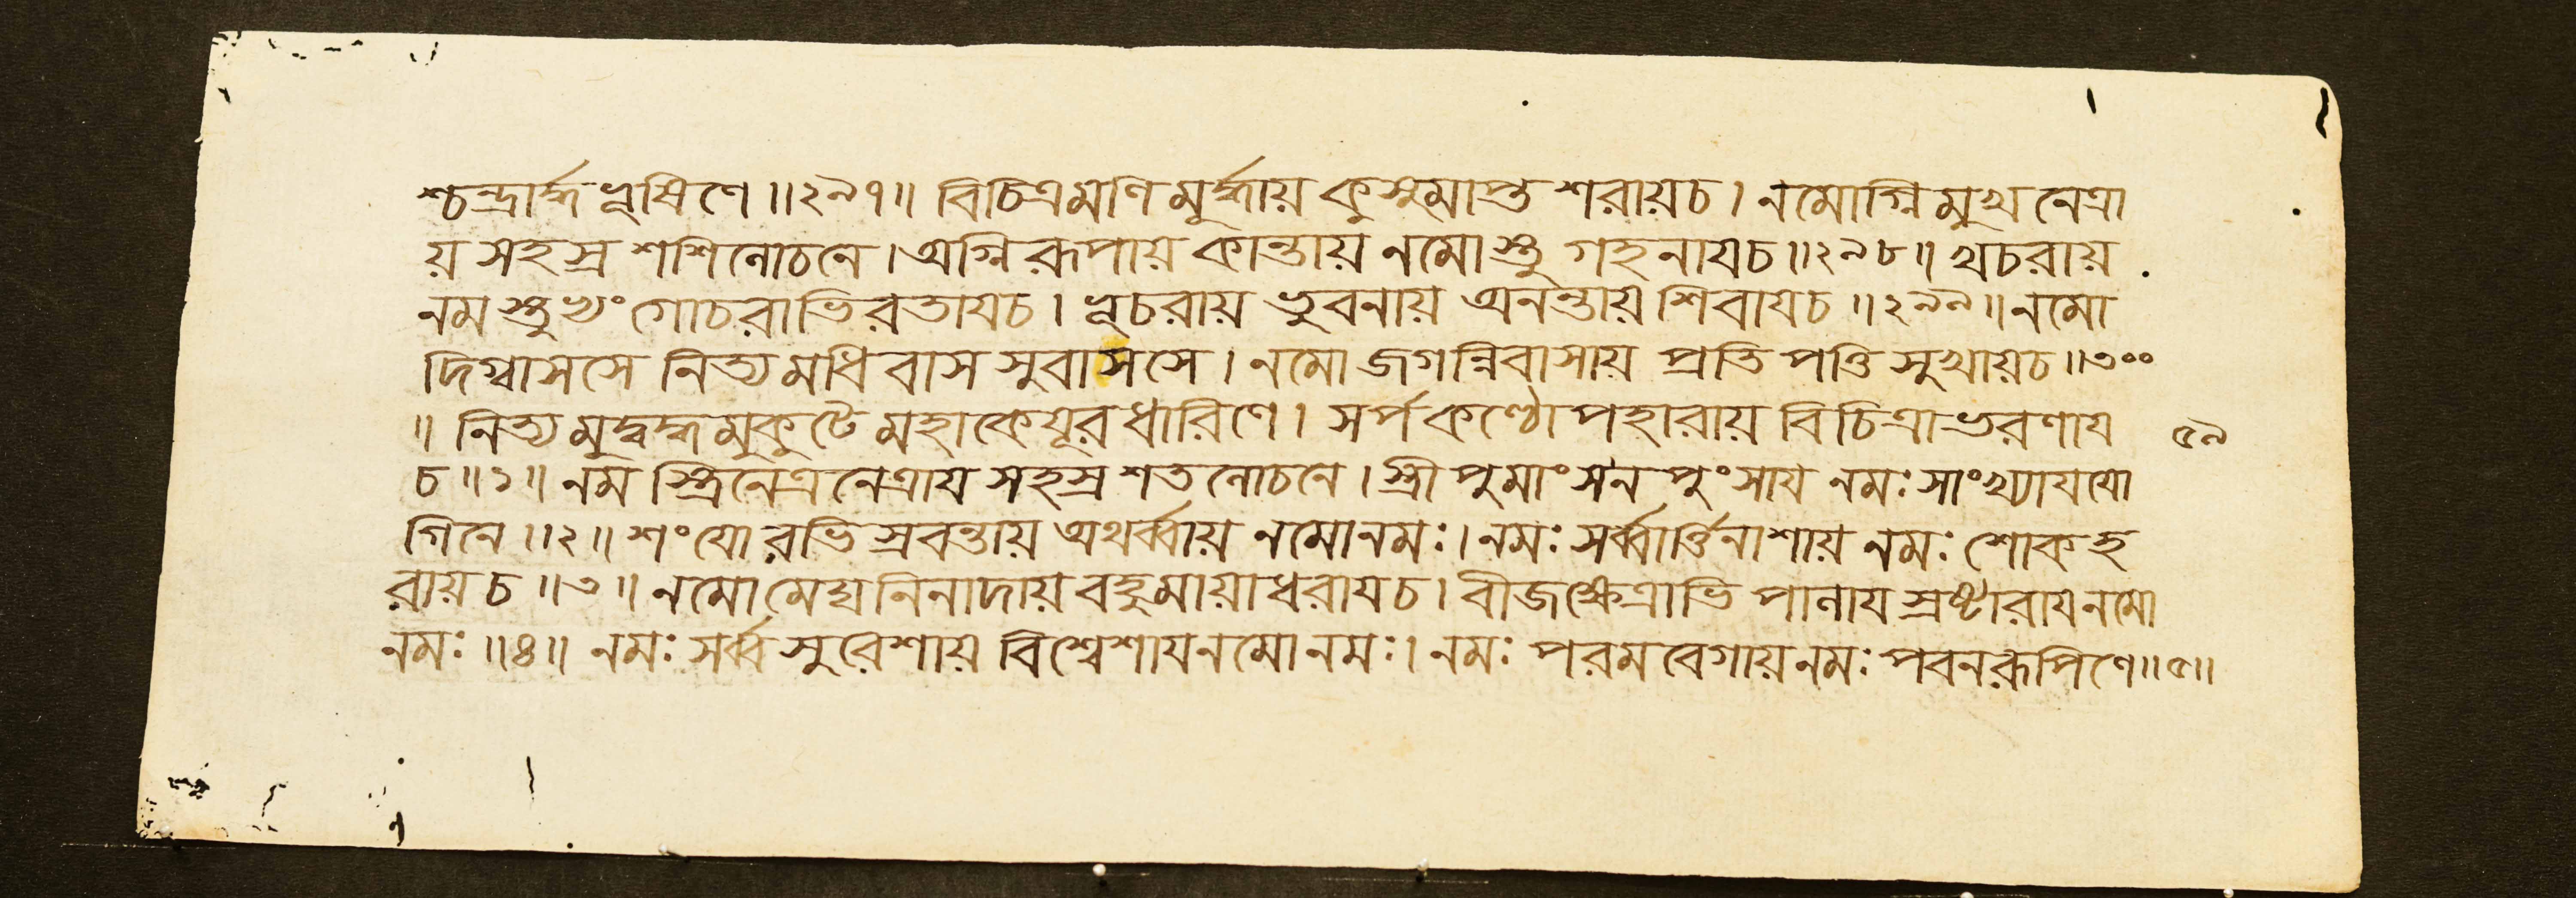 শ্চন্দ্রার্দ্ধ ভূষিণে ॥২৯৭॥ বিচিত্রমণি মূর্দ্ধায় কুসুমাপ্ত শরায়চ। নমোগ্নি মুখ নেত্রা
য় সহস্র শশিলোচনে। অগ্নি রূপায় কান্তায় নমোস্তু গহনায়চ ॥২৯৮॥ খচরায়
নমস্তুখং গোচরাভিরতায়চ। ভূচরায় ভুবনায় অনন্তায় শিবায়চ ॥২৯৯॥ নমো
দিগ্বাসসে নিত্যমধিবাস সুবাসসে। নমো জগন্নিবাসায় প্রতিপত্তি সুখায়চ ॥৩০০
॥ নিত্যমুদ্বদ্ধমুকুটে মহাকেযূরধারিণে। সর্পকণ্ঠোপহারায় বিচিত্রাভরণায়
৫৯
চ ॥১॥ নমস্ত্রিনেত্রনেত্রায় সহস্র শতলোচনে। স্ত্রী পুমাংসন পুংসায় নমঃ সাংখ্যায়যো
গিনে ॥২॥ শংযোরভিস্রবন্তায় অথর্ব্বায় নমোনমঃ। নমঃ সর্ব্বার্ত্তিনাশায় নমঃ শোকহ
রায়চ ॥৩॥ নমো মেঘনিনাদায় বহুমায়াধরায়চ। বীজক্ষেত্রাভিপালায় স্রষ্টারায়নমো
নমঃ ॥৪॥ নমঃ সর্ব্ব সুরেশায় বিশ্বেশায়নমোনমঃ। নমঃ পরমবেগায়নমঃ পবনরূপিণে ॥৫॥